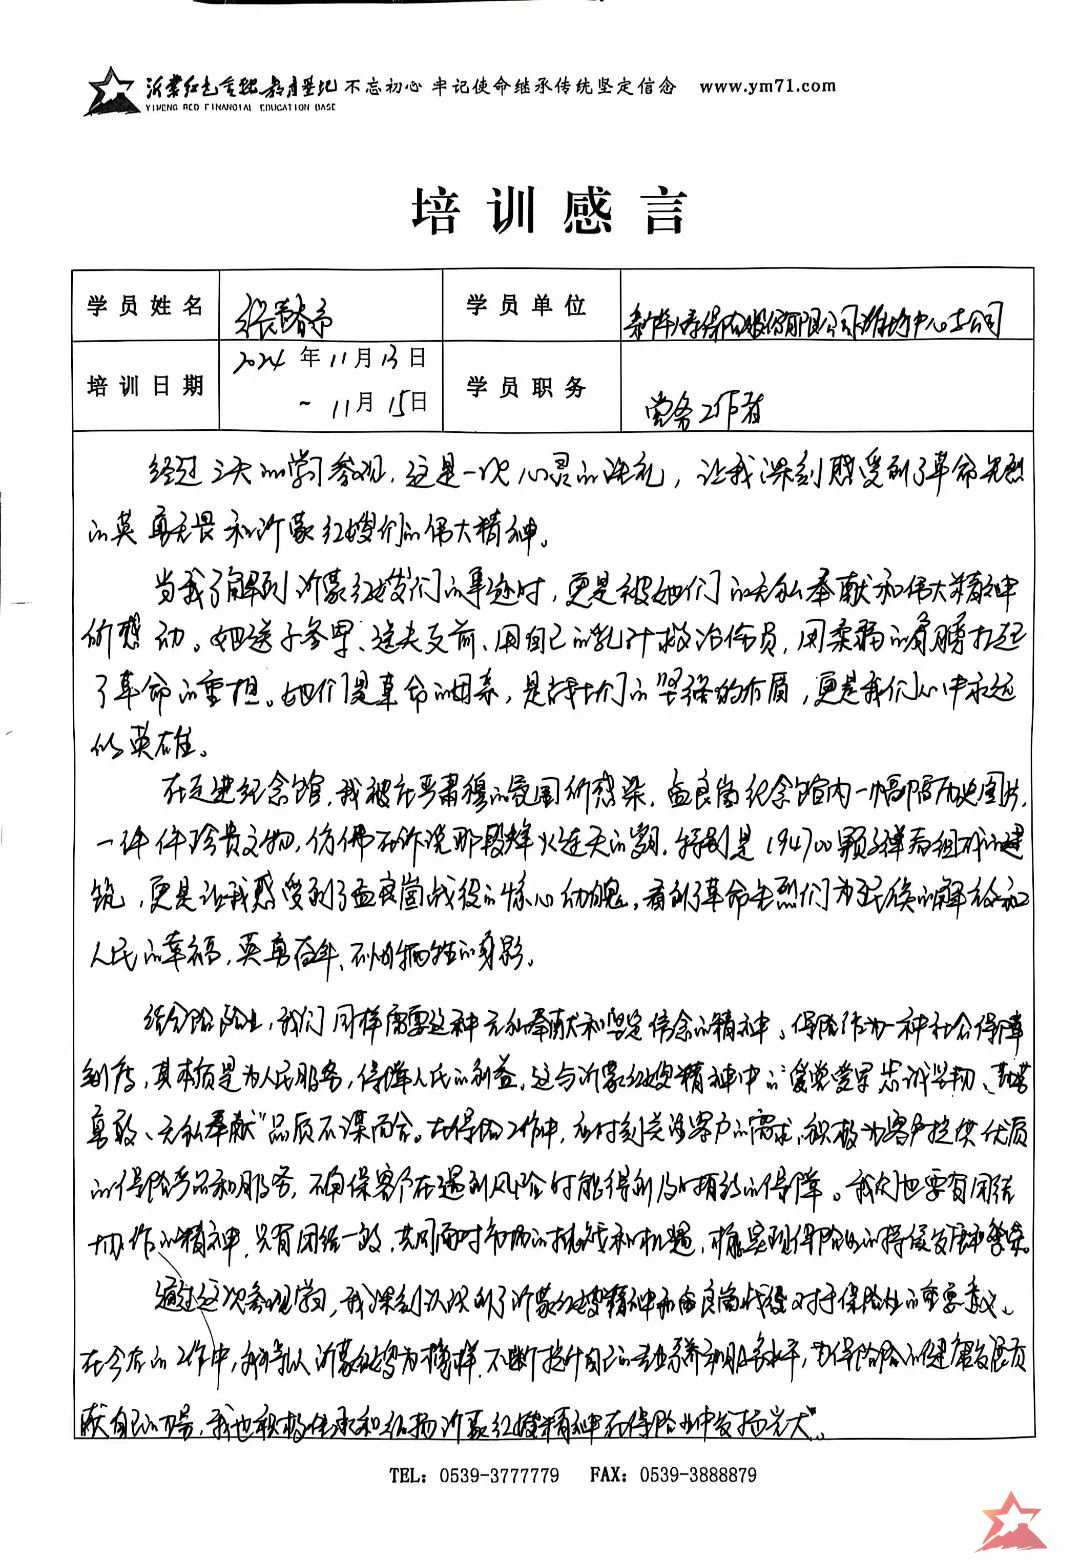 沂蒙红色金融教育基地 不忘初心 牢记使命继承传统坚定信念 www.ym71.com
YIMENG RED FINANCIAL EDUCATION BASE
培训感言
学员姓名 张春 学员单位 新华人寿保险股份有限公司潍坊中心支公司
培训日期 2024年11月13日 ~ 11月15日 学员职务 党务工作者
经过三天的学习参观,这是一次心灵的洗礼,让我深刻感受到了革命先烈
的英勇无畏和沂蒙红嫂们的伟大精神。
当我了解到沂蒙红嫂们的事迹时,更是被她们的无私奉献和伟大精神
所感动。她送子参军、送夫支前、用自己的乳汁救治伤员,用柔弱的肩膀扛起
了革命的重担。她们是革命的因素,是战士们的坚强的后盾,更是我们心中永远
的英雄。
在走进纪念馆,我被庄严肃穆的氛围所感染,孟良崮纪念馆内一幅幅历史图片,
一件件珍贵文物,仿佛在诉说那段烽火连天的岁月,特别是194700颗子弹壳组成的建
筑,更是让我感受到了孟良崮战役的惊心动魄,看到了革命先烈们为民族的解放和
人民的幸福,英勇奋斗、不怕牺牲的身影。
结合保险业,我们同样需要这种无私奉献和坚定信念的精神。保险作为一种社会保障
制度,其本质是为人民服务,保障人民的利益。这与沂蒙红嫂精神中的“爱党爱军忠诚坚韧、
勇敢、无私奉献”品质不谋而合。在保险工作中,应时刻关注客户的需求,积极为客户提供优质
的保险产品和服务,确保客户在遇到风险时能得到及时有效的保障。我们也要有团结
协作的精神,只有团结一致,共同面对市场的挑战和机遇,才能实现保险业的持续发展和繁荣。
通过这次参观学习,我深刻认识到了沂蒙红嫂精神和孟良崮战役对于保险业的重要意义。
在今后的工作中,我将以沂蒙红嫂为榜样,不断提升自己的专业素养和服务水平,为保险的健康发展贡
献自己的力量,我也积极传承和弘扬沂蒙红嫂精神在保险业中发扬光大。
TEL: 0539-3777779 FAX: 0539-3888879